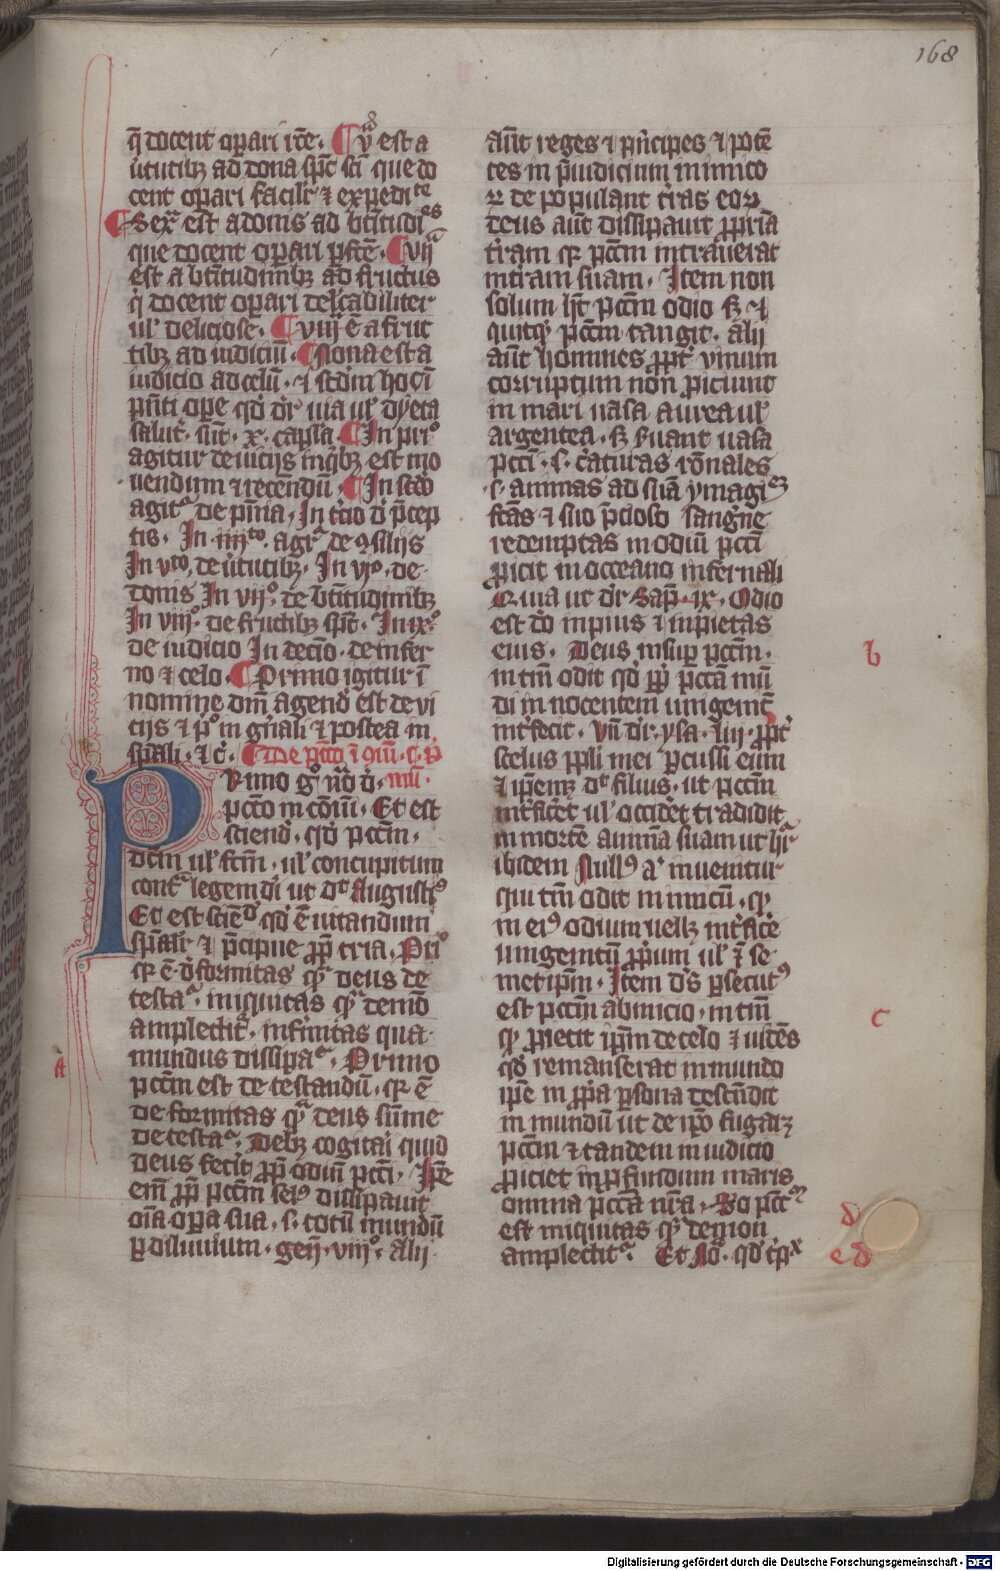 168
q̄ docent oꝑari r̄cē. ¶ v̄ͣ est a
v̓tutibꝫ ad dona sp̄c sc̄i que do
cent oꝑari facilr̓ ⁊ expeditᵉ
¶ Sexͣ est a donis ad bt̄itudīᵉˢ
que docent oꝑari ꝑfc̄ē. ¶ vijͣ
est a bt̄itudinibꝫ ad fructus
q̓ docent oꝑari delc̄abiliter
ul̓ deliciose. ¶ viijͣ ē a fruc
tibꝫ ad iudiciū. ¶ Nona est a
iudicio ad celū. ⁊ sc̄dm hoc ī
pn̄ti oꝑe qd̓ dr̓ uia ul̓ dyeta
salut̓. sūt. x. capl̓a. ¶ In pri°
agitur de uicijs in q̓bꝫ est mo
uendum ⁊ recendū. ¶ In sc̄do
agitᷣ de pn̄ia, In t̓cio d̓ p̄cep
tis. In iiij̄ᵗᵒ. agiᷣ de ꝯsilijs
In vᵗᵒ, de v̓tutibꝫ. In vj°. de
donis In vij°. de bt̄itudinibꝫ
In viij°. de fructibꝫ sp̄c. In ix°.
de iudicio In decīo. de infer
no ⁊ celo. ¶ Primo igitur ī
nomine dn̄i agend̓ est de vi
tijs ⁊ p̓° in gn̓ali ⁊ postea in
sp̄ali. ⁊ c̓. ¶ De pc̄cō ī ꝯiū. c. p̄
Primo g° nō d̓. mū.
pc̄cō in cōm̄i. Et est
sciend̓. qd̓ pc̄cm̄.
dc̄m ul̓ fc̄m̄. ul̓ concupitum
contͣ legem di̓ ut dt̓ Augusti°
Et est sciēd̓ qd̓ ē uitandum
sp̄alr̓ ⁊ p̄cipue ꝓp̄ tria, Pri°
qr̓ ē d̓formitas quͣ deus de
testaᷣ. iniquitas quͣ demō
amplectit̓. infinitas qua
mundus dissipaᷣ. Primo
pc̄cm̄ est de testandū. qr̓ ē
de formitas quͣ deus sūme
de testaᷣ. Debꝫ cogitāi quid
deus fecit ꝓp̄ odiū pc̄ci. Ip̄e
em̄ ꝓp̄ pc̄cm̄ sel̓ dissipauit
oīa oꝑa sua. s. totū mundū
ꝑ diluuium. gen̄. viij°. Alij
aūt reges ⁊ pn̓cipes ⁊ potē
tes in p̄iudicium inimico
ꝝ de populant t̓ras eoꝝ
deus aūt dissipauit ꝓpriā
t̓ram qr̓ pc̄cm̄ intrauerat
int̓ram suam. Item non
solum hʒ̄t pc̄cm̄ odio sꝫ ⁊
quitqͥ pc̄cm̄ tangit. alij
aūt homines ꝓpt̓ vinum
corruptum non ꝓiciunt
in mari uasa aurea ul̓
argentea. sꝫ s̓uant uasa
pc̄ci. s. c̓aturas rōnales
.s. animas ad suā ymagiᵉꝫ
fc̄as ⁊ suo p̄cioso sangn̓e
redemptas in odiū pc̄ci
ꝓicit in occeano infernali
Quia ut dr̓ Sap̄. ix. Odio
est do̅ inpius ⁊ inpietas
eius. Deus insuꝑ pc̄cm̄.
in tm̄ odit qd̓ ꝓp̄ pc̄cā mū
di in nocentem unigenit̄
int̓fecit. Vn̄ dr̓. ysa. liij. ꝓpt̓
scelus ppl̓i mei percussi eum
⁊ ip̄emꝫ dt̓ filius. ut pc̄cm̄
int̓fic̓et ul̓ occid̓et tradidit
in mortē animā suam ut hr̓
ibidem Null° aᵘ inuenitur
qui tm̄ odit inimicū. qꝫ
in ei° odium uellꝫ int̓fic̓e
unigenitū ꝓp̓um ul̓ ⁊ se
met ip̄m. Item ds̓ ꝑsecut°
est pc̄cm̄ ab inicio. in tm̄
qꝫ ꝓiecit ip̄m de celo ⁊ uidēs
qd̓ remanserat in mundo
ip̄e in ꝓp̓a ꝑsona descēdit
in mundū ut de ip̄o fugar̓ꝫ
pc̄cm̄ ⁊ tandem in iudicio
ꝓiciet in ꝓfundum maris
omnia pc̄cā nr̄a. Io pc̄cͫ
est iniquitas quͣ demon
amplectit̓ᷣ. Et No̅. qd̓ t̓pˣ
A
b
c
d
e d
Digitalisierung gefördert durch die Deutsche Forschungsgemeinschaft - DFG